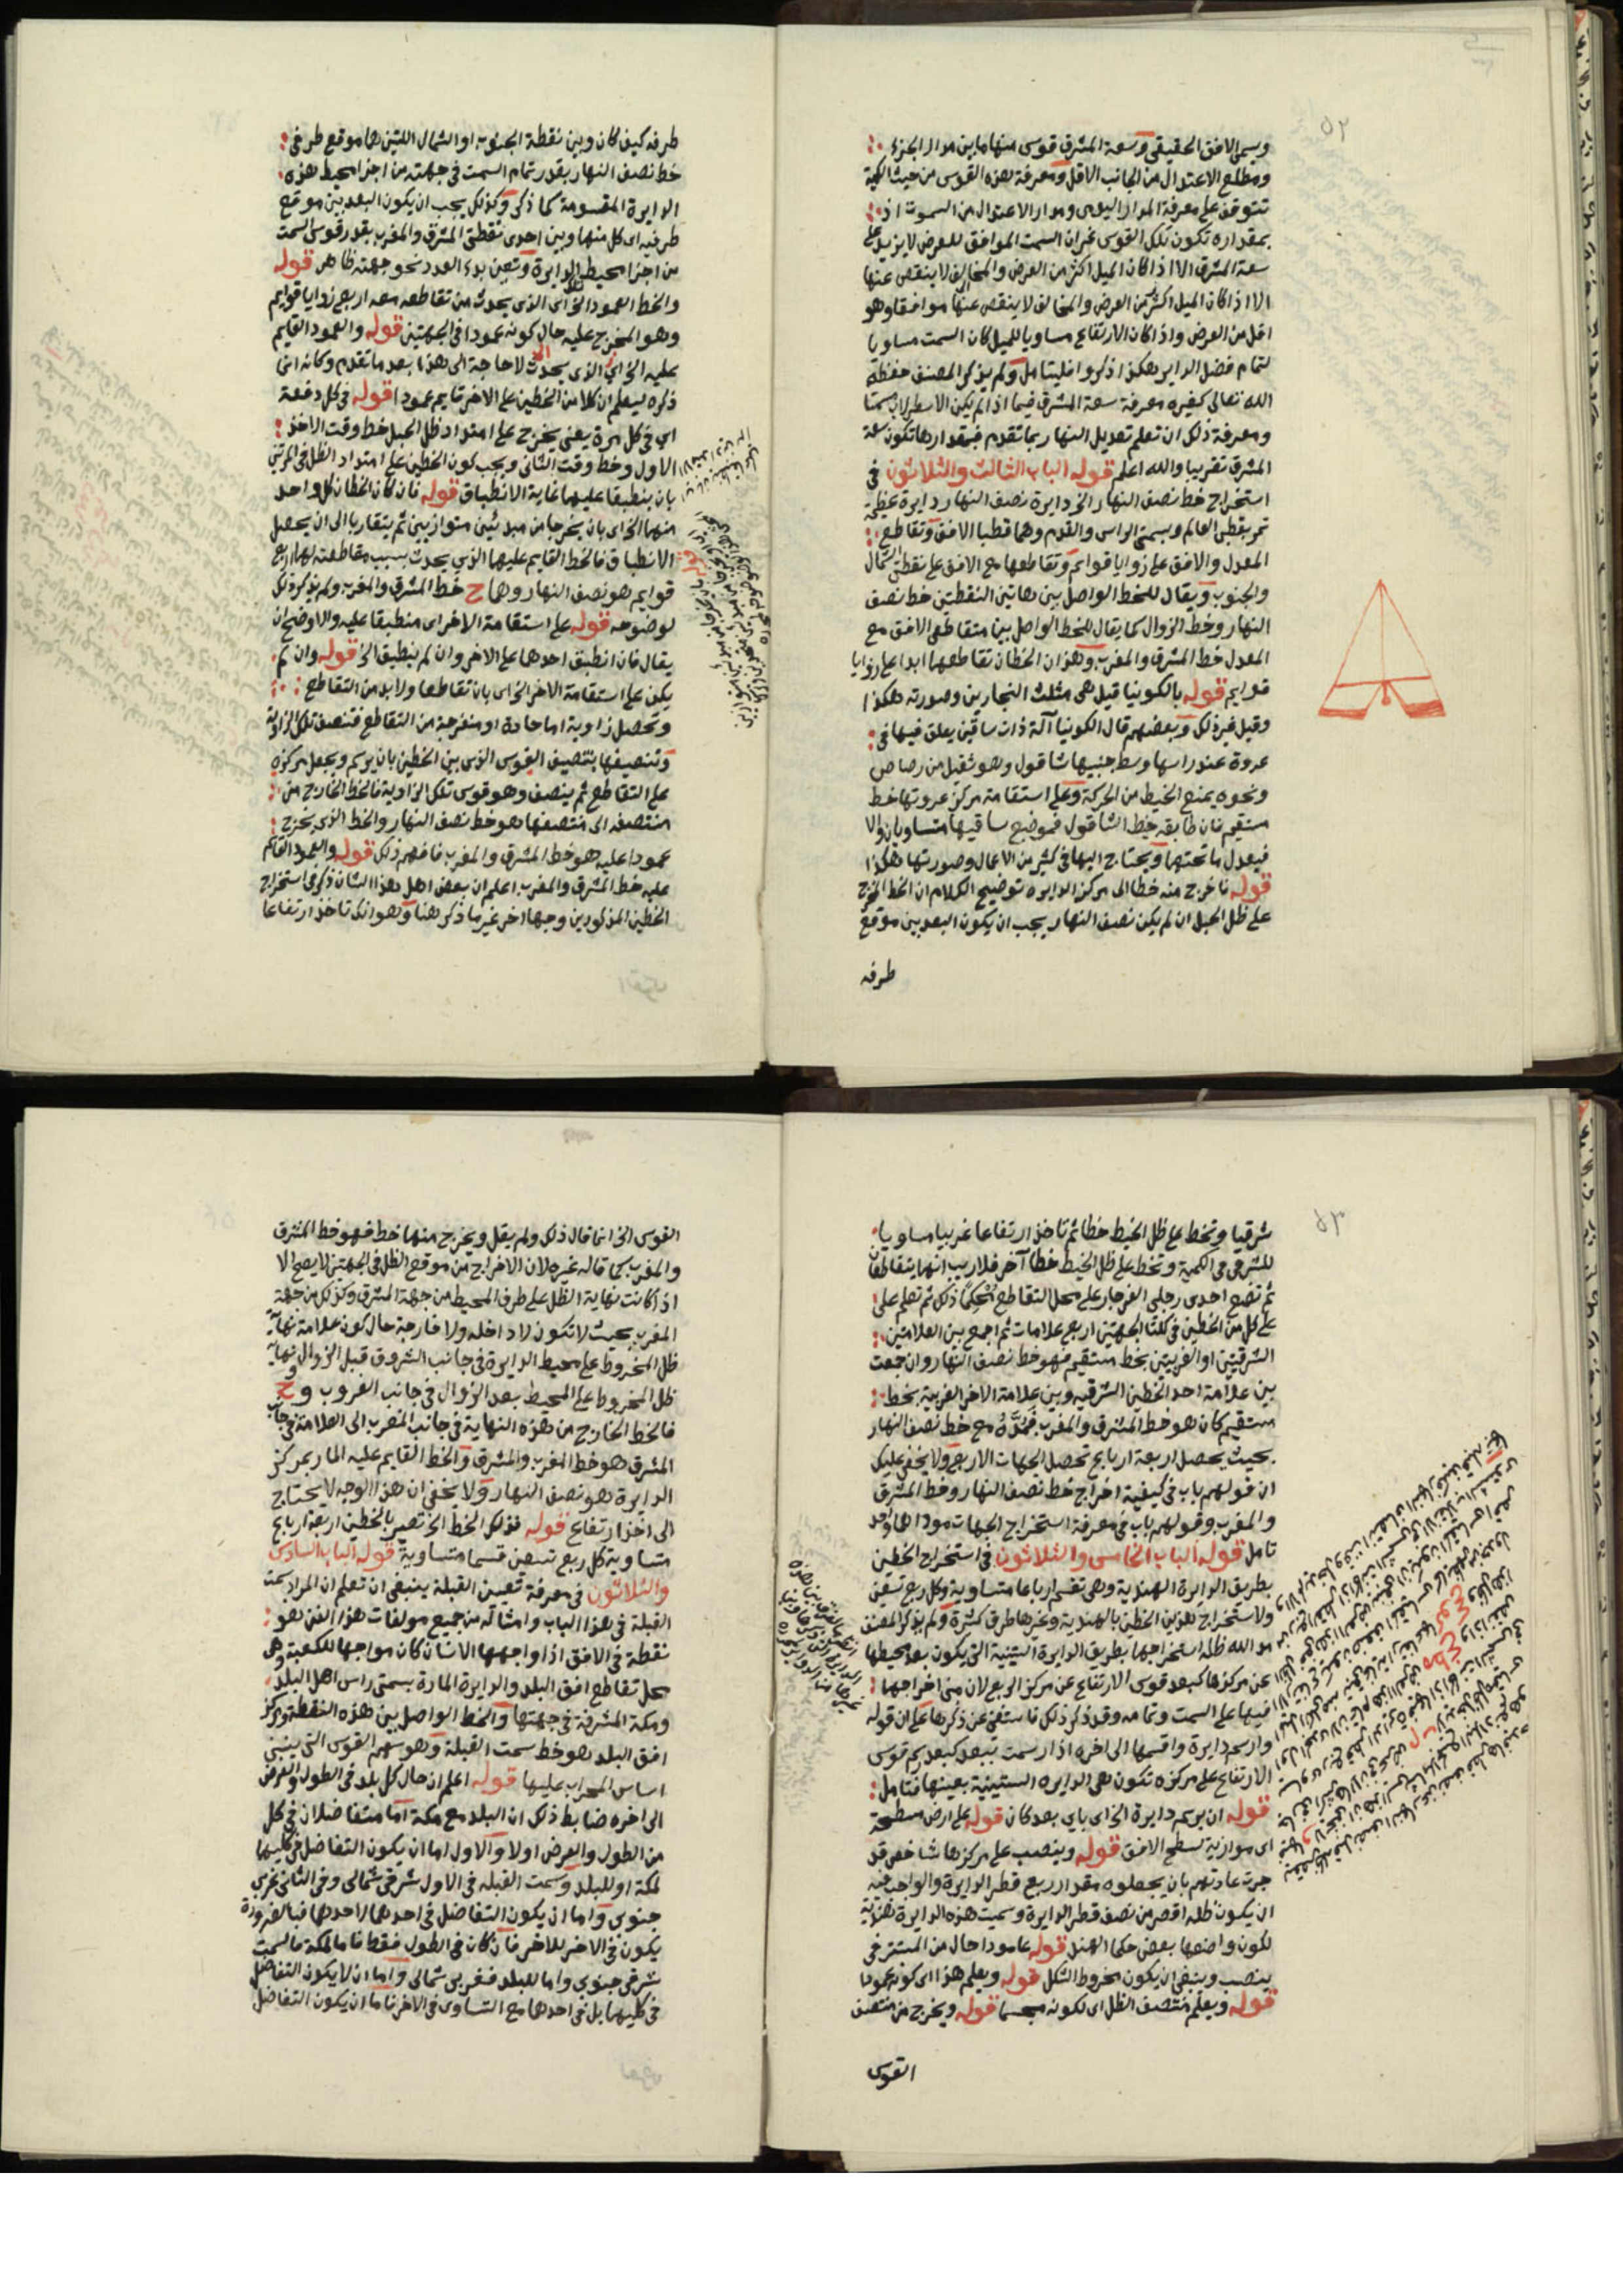 ٥٢
ويسمى الافق الحقيقي وسعة المشرق قوس منها ما بين مدار الجزء
ومطلع الاعتدال من الجانب الاقل ومعرفة هذه القوس من حيث الكمية
تتوقف على معرفة المدار اليومي ومدار الاعتدال من السموت اذ
بمقداره تكون تلك القوس غير ان السمت الموافق للعرض لا يزيد على
سعة المشرق الا اذا كان الميل اكثر من العرض والمخالف لا ينقص عنها
الا اذا كان الميل اكثر من العرض والمخالف لا ينقص عنها موافقا وهو
اقل من العرض واذا كان الارتفاع مساويا للميل كان السمت مساويا
لتمام فضل الداير هكذا ذكروا فليتامل ولم يذكر المصنف حفظه
الله تعالى كغيره معرفة سعة المشرق فيما اذا لم يكن الاسطرلاب مسمتا
ومعرفة ذلك ان تعلم تعديل النهار بما تقدم فبمقدارها تكون سعة
المشرق تقريبا والله اعلم قوله الباب الثالث والثلاثون في
استخراج خط نصف النهار الخ دايرة نصف النهار دايرة عظيمة
تمر بقطبي العالم وبسمتي الراس والقدم وهما قطبا الافق وتقاطع
المعدل والافق على زوايا قوايم وتقاطعها مع الافق على نقطتي الشمال
والجنوب ويقال للخط الواصل بين هاتين النقطتين خط نصف
النهار وخط الزوال كما يقال للخط الواصل بين متقاطعي الافق مع
المعدل خط المشرق والمغرب وهذان الخطان تقاطعهما ابدا على زوايا
قوايم قوله بالكونيا قيل هي مثلث النجارين وصورته هكذا
وقيل غير ذلك وبعضهم قال الكونيا آلة ذات ساقين يعلق فيها في
عروة عند راسها وسط جنبيها شاقول وهو ثقيل من رصاص
ونحوه يمنع الخيط من الحركة وعلى استقامة مركز عروتها خط
مستقيم فان طابقه خيط الشاقول فموضع ساقيها متساويان والا
فيعدل ما تحتهما ويحتاج اليها في كثير من الاعمال وصورتها هكذا
قوله فاخرج منه خطا الى مركز الدايره توضيح الكلام ان الخط المخرج
على ظل الحبل ان لم يكن نصف النهار يجب ان يكون البعد بين موقع
طرفه
طرفه كيف كان وبين نقطة الجنوب او الشمال اللتين هما موقع طرفي
خط نصف النهار بقدر تمام السمت في جهته من اجزا محيط هذه
الدايرة المقسومة كما ذكر وكذلك يجب ان يكون البعد بين موقع
طرفيه اي كل منهما وبين احدى نقطتي المشرق والمغرب بقدر قوس السمت
من اجزا محيط الدايرة وتعين بدء العدد نحو جهته ظاهر قوله
والخط العمود الخ اي الذي يحدث من تقاطعه معه اربع زوايا قوايم
وهو المخرج عليه حال كونه عمودا في الجهتين قوله والعمود القايم
عليه الخ اي الذي يحدث لا حاجة الى هذا بعد ما تقدم وكانه انما
ذكره ليعلم ان كلا من الخطين على الاخر قايم عمودا قوله في كل دفعة
اي في كل مرة يعني يخرج على امتداد ظل الحبل خط وقت الاخذ
الاول وخط وقت الثاني ويجب كون الخطين على امتداد الظل في المرتين
بان ينطبقا عليهما غاية الانطباق قوله فان كان الخطان كل واحد
منهما الخ اي بان يخرجا من مبدئين متوازيين ثم يتقاربا الى ان يحصل
الانطباق فالخط القايم عليهما الذي يحدث بسبب مقاطعته لهما اربع
قوايم هو نصف النهار وهما ح خط المشرق والمغرب ولم يذكر ذلك
لوضوحه قوله على استقامة الاخر اي منطبقا عليه والاوضح ان
يقال فان انطبق احدهما على الاخر وان لم ينطبق الخ قوله وان لم
يكن على استقامة الاخر الخ اي بان تقاطعا ولا بد من التقاطع
وتحصل زاوية اما حادة او منفرجة من التقاطع فتنصف تلك الزاوية
وتنصيفها بتنصيف القوس الذي بين الخطين بان يرسم ويجعل مركزه
على التقاطع ثم ينصف وهو قوس تلك الزاوية فالخط الخارج من
منتصفه الى منتصفها هو خط نصف النهار والخط الذي يخرج
عمودا عليه هو خط المشرق والمغرب فافهم ذلك قوله والعمود القايم
عليه خط المشرق والمغرب اعلم ان بعض اهل هذا الشان ذكر في استخراج
الخطين المذكورين وجها اخر غير ما ذكر هنا وهو انك تاخذ ارتفاعا
٥٣
شرقيا وتخط على ظل الخيط خطا ثم تاخذ ارتفاعا غربيا مساويا
للشرقي في الكمية وتخط على ظل الخيط خطا آخر فلا ريب انهما يتقاطعان
ثم تضع احدى رجلي الفرجار على محل التقاطع مُحْكِمًا ذلك ثم تعلم على
على كل من الخطين في كلتا الجهتين اربع علامات ثم اجمع بين العلامتين
الشرقيتين او الغربيتين بخط مستقيم فهو خط نصف النهار وان جمعت
بين علامة احد الخطين الشرقيه وبين علامة الاخر الغربية بخط
مستقيم كان هو خط المشرق والمغرب فَمُدَّهُ مع خط نصف النهار
بحيث يحصل اربعة ارباع تحصل الجهات الاربع ولا يخفى عليك
ان قولهم باب في كيفية اخراج خط نصف النهار وخط المشرق
والمغرب وقولهم باب في معرفة استخراج الجهات موداهما واحد
تامل قوله الباب الخامس والثلاثون في استخراج الخطين
بطريق الدايرة الهندية وهي تقسم ارباعا متساوية وكل ربع تسعين
ولاستخراج هذين الخطين بالهندية وغيرها طرق كثيرة ولم يذكر المصنف
مد الله ظله استخراجهما بطريق الدايرة الستينية التي يكون بعد محيطها
عن مركزها كبعد قوس الارتفاع عن مركز الربع لان مبنى اخراجهما
فيها على السمت وتمامه وقد ذكر ذلك فاستغنى عن ذكرها على ان قوله
وارسم دايرة واقسمها الى اخره اذا رسمت ببعد كبعد رسم قوس
الارتفاع على مركزه تكون هي الدايره الستينية بعينها فتامل
قوله ان يرسم دايرة الخ اي باي بعد كان قوله على ارض مسطحة
اي موازية لسطح الافق قوله وينصب على مركزها شاخص قد
جرت عادتهم بان يجعلوه مقدار ربع قطر الدايرة والواجب فيه
ان يكون ظله اقصر من نصف قطر الدايرة وسميت هذه الدايرة هندية
لكون واضعها بعض حكما الهند قوله عامودا حال من المستتر في
ينصب وينبغي ان يكون مخروط الشكل قوله ويعلم هذا اي كونه عمودا
قوله ويعلم منتصف الظل اي لكونه مجسما قوله ويخرج من منتصف
القوس
القوس الخ انما قال ذلك ولم يقل ويخرج منها خط فهو خط المشرق
والمغرب كما قاله غيره لان الاخراج من موقع الظل في الجهتين لا يصح الا
اذا كانت نهاية الظل على طرف المحيط من جهة المشرق وكذلك من جهة
المغرب بحيث لا تكون لا داخله ولا خارجة حال كون علامة نهاية
ظل المخروط على محيط الدايرة في جانب الشروق قبل الزوال ونهاية
ظل المخروط على المحيط بعد الزوال في جانب الغروب وح
فالخط الخارج من هذه النهاية في جانب المغرب الى العلامة في جانب
المشرق هو خط المغرب والمشرق والخط القايم عليه المار بمركز
الدايرة هو نصف النهار ولا يخفى ان هذا الوجه لا يحتاج
الى اخذ ارتفاع قوله فذلك الخط الخ تصير بالخطين اربعة ارباع
متساوية كل ربع تسعين قسما متساوية قوله الباب السادس
والثلاثون في معرفة تعيين القبلة ينبغي ان تعلم ان المراد بسمت
القبلة في هذا الباب وامثاله من جميع مولفات هذا الفن هو
نقطة في الافق اذا واجهها الانسان كان مواجها للكعبة وهي
محل تقاطع افق البلد والدايرة المارة بسمتي راس اهل البلد
ومكة المشرفة في جهتها والخط الواصل بين هذه النقطة ومركز
افق البلد هو خط سمت القبلة وهو سهم القوس التي يبنى
اساس المحراب عليها قوله اعلم ان حال كل بلد في الطول والعرض
الى اخره ضابط ذلك ان البلد مع مكة اما متفاضلان في كل
من الطول والعرض اولا والاول اما ان يكون التفاضل في كليهما
لمكة او للبلد وسمت القبله في الاول شرقي شمالي وفي الثاني غربي
جنوبي واما ان يكون التفاضل في احدهما لاحدهما فبالضرورة
يكون في الاخر للاخر فان كان في الطول فقط فاما لمكة فالسمت
شرقي جنوبي واما للبلد فغربي شمالي واما ان لا يكون التفاضل
في كليهما بل في احدهما مع التساوي في الاخر فاما ان يكون التفاضل